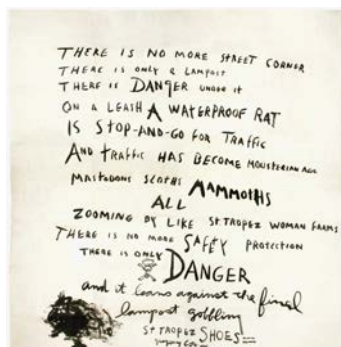 THERE IS NO MORE STREET CORNER
THERE IS ONLY A LAMPOST
THERE IS DANGER UNDER IT
ON A LEASH A WATERPROOF RAT
IS STOP-AND-GO FOR TRAFFIC
AND TRAFFIC HAS BECOME MOUSTERIAN AGE
MASTODONS SLOTHS MAMMOTHS
ALL
ZOOMING BY LIKE ST. TROPEZ WOMAN FARMS
THERE IS NO MORE SAFETY PROTECTION
THERE IS ONLY DANGER
and it leans against the final
lampost gobbling
ST TROPEZ SHOES